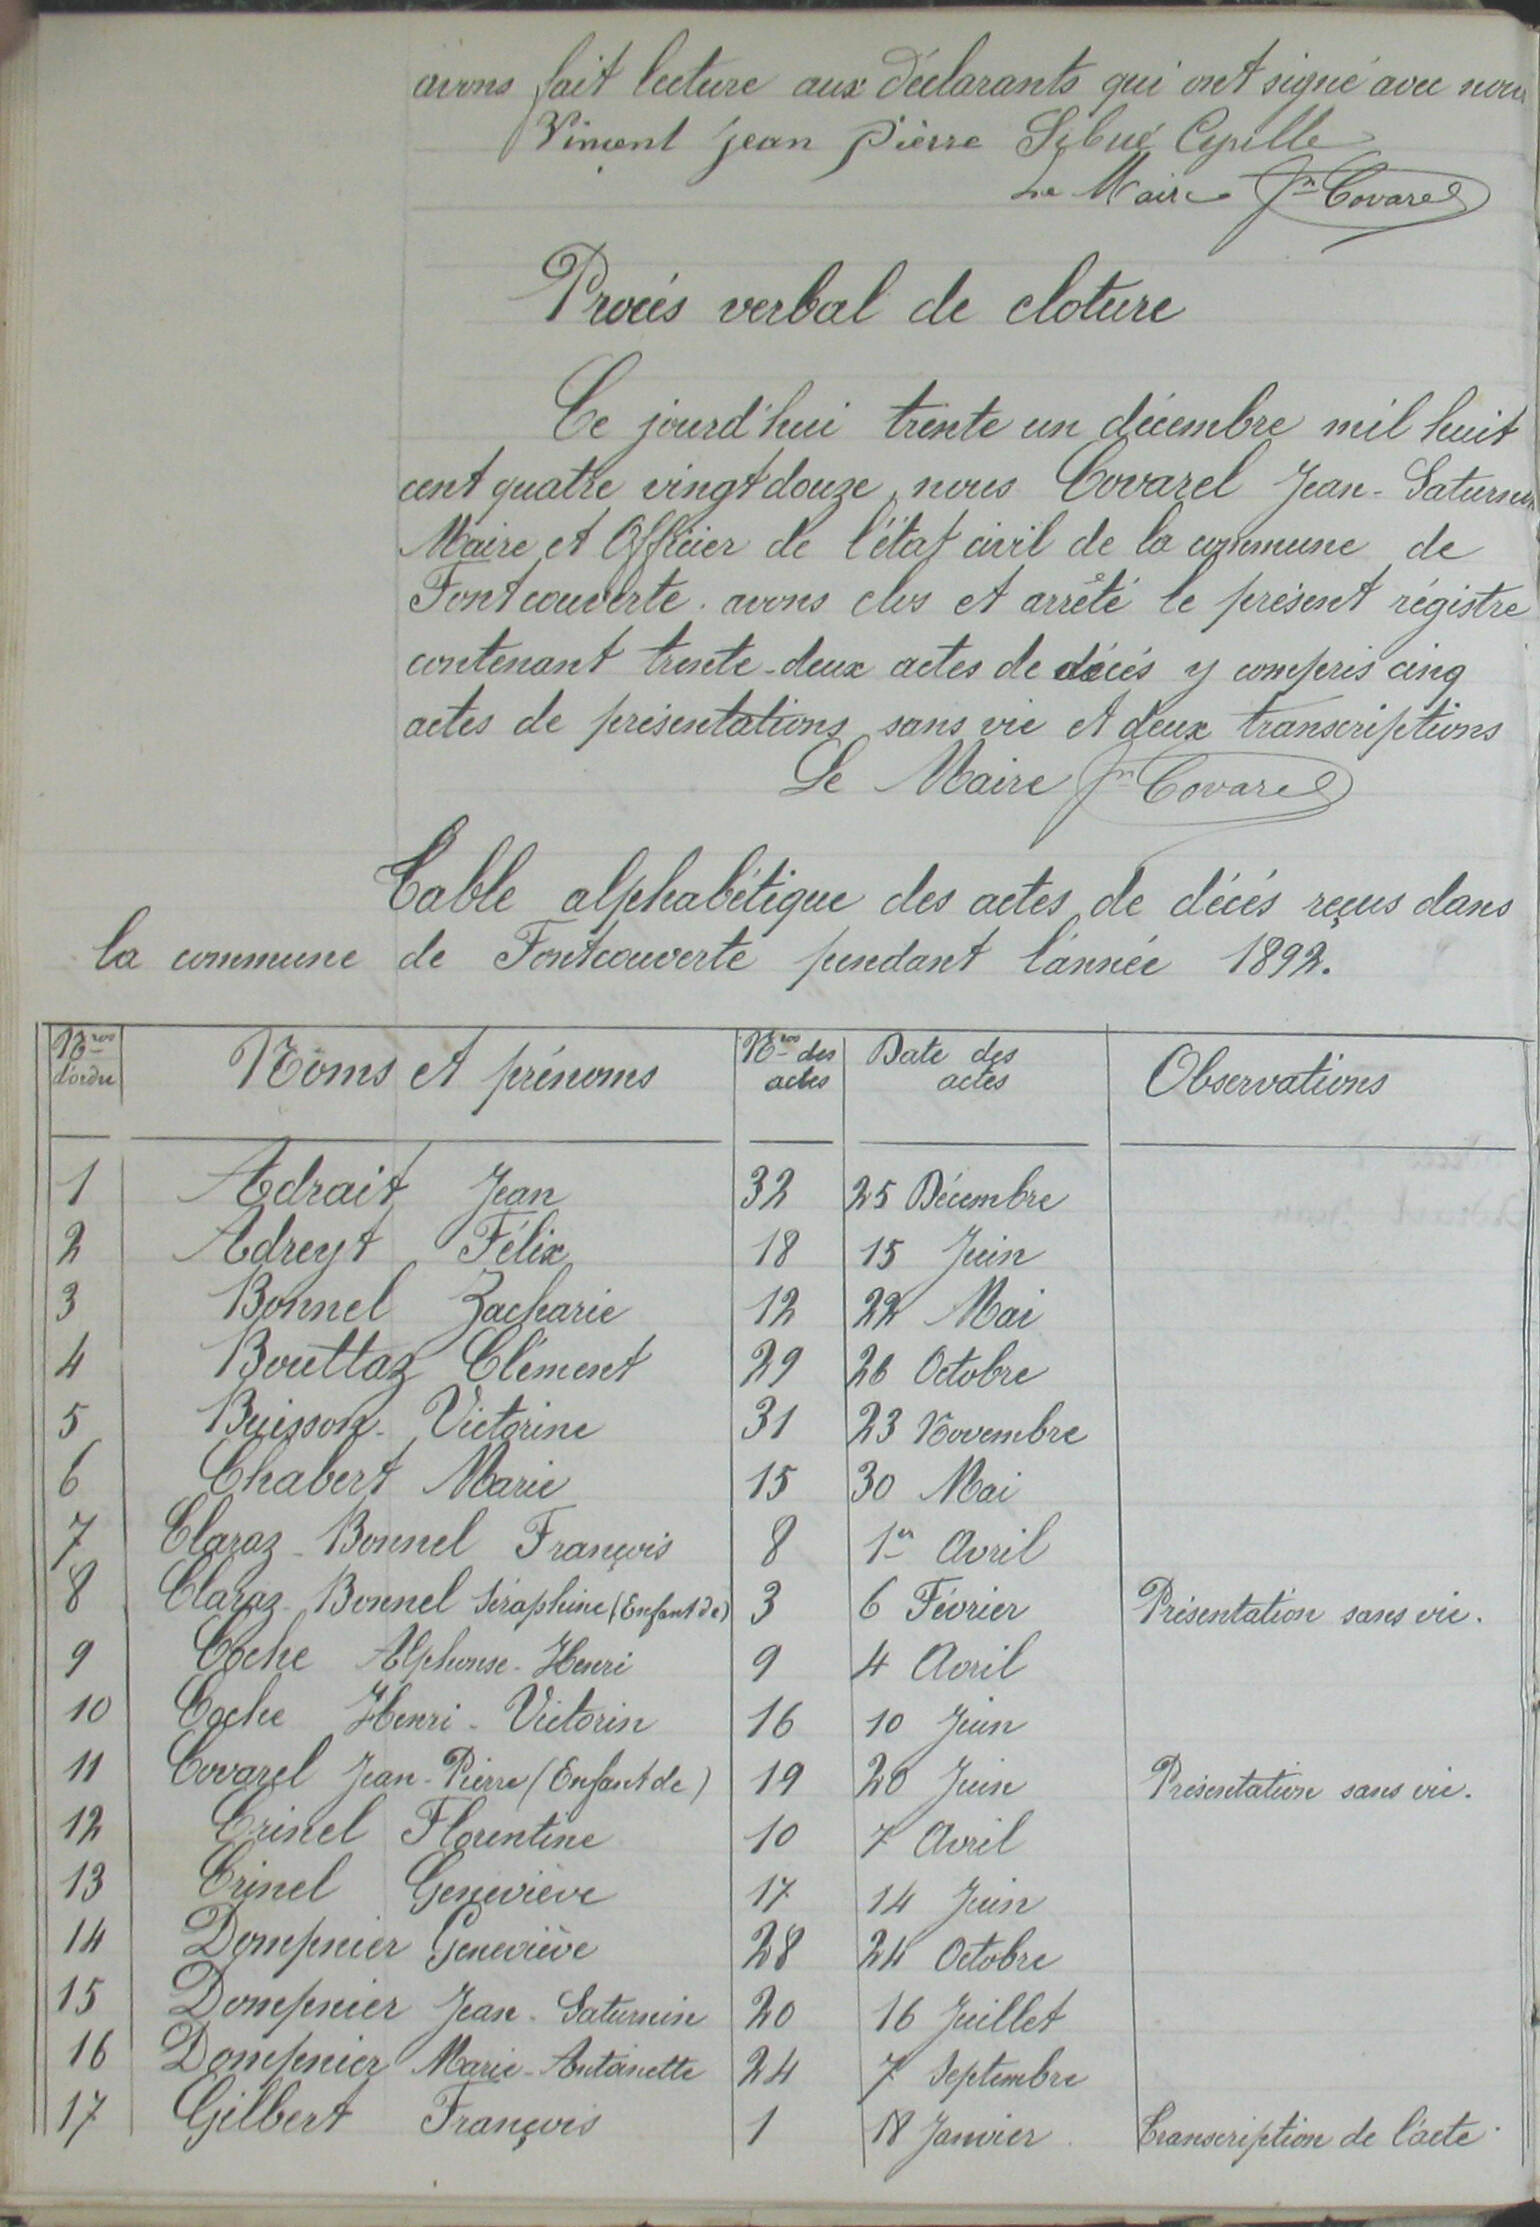 avons fait lecture aux déclarants qui ont signé avec nous
Vincent jean pierre Sibué Cyrille
Le Maire Jn Covarel
Procés verbal de cloture
Ce jourd'hui trente un décembre mil huit
cent quatre vingt douze, nous Covarel Jean-Saturnin
Maire et Officier de l'état civil de la commune de
Fontcouverte. avons clos et arrêté le présent régistre
contenant trente-deux actes de décés y compris cinq
actes de présentations sans vie et deux transcriptions
Le Maire Jn Covarel
Table alphabétique des actes de décés reçus dans
la commune de Fontcouverte pendant l'année 1892.
Nros d'ordre Noms et prénoms Nros des actes Date des actes Observations
1 Adrait Jean 32 25 Décembre
2 Adreyt Félix 18 15 Juin
3 Bonnel Zacharie 12 22 Mai
4 Bouttaz Clément 29 26 Octobre
5 Buisson-Victorine 31 23 Novembre
6 Chabert Marie 15 30 Mai
7 Claraz-Bonnel François 8 1er Avril
8 Claraz-Bonnel Séraphine (Enfant de) 3 6 Février Présentation sans vie.
9 Coche Alphonse-Henri 9 4 Avril
10 Coche Henri-Victorin 16 10 Juin
11 Covarel Jean-Pierre (Enfant de) 19 20 Juin Présentation sans vie.
12 Crinel Florentine 10 7 Avril
13 Crinel Geneviève 17 14 Juin
14 Dompnier Geneviève 28 24 Octobre
15 Dompnier Jean-Saturnin 20 16 Juillet
16 Dompnier Marie-Antoinette 24 7 Septembre
17 Gilbert François 1 18 Janvier Transcription de l'acte.